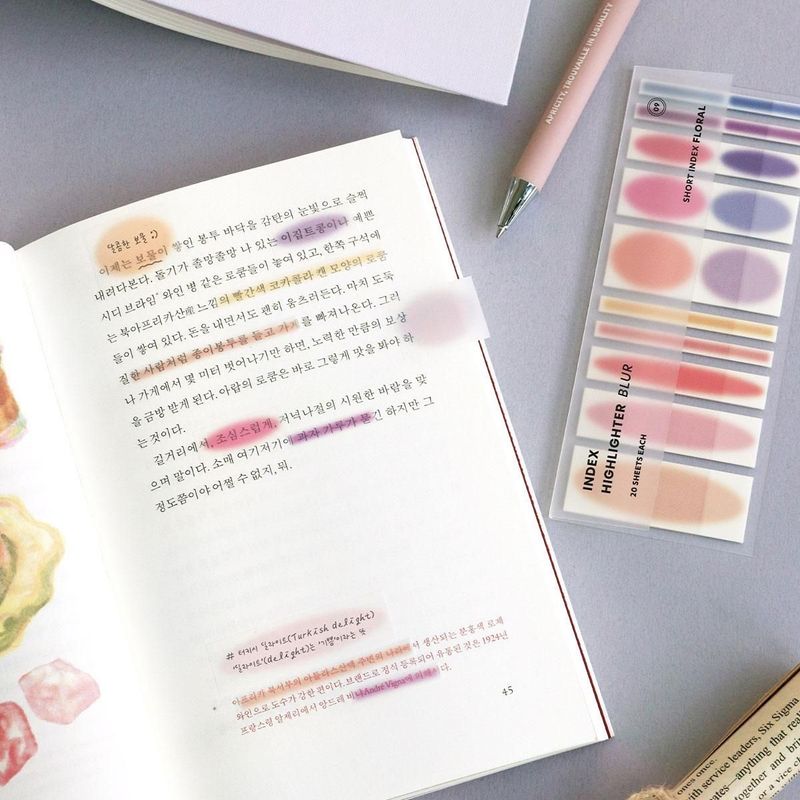 APRICITY, TROUVAILLE IN USUALITY
09
SHORT INDEX FLORAL
INDEX
HIGHLIGHTER BLUR
20 SHEETS EACH
달콤한 보물 :)
이제는 보물이 쌓인 봉투 바닥을 감탄의 눈빛으로 슬쩍
내려다본다. 돌기가 졸망졸망 나 있는 이집트콩이나 예쁜
시디 브라임 와인 병 같은 로쿰들이 놓여 있고, 한쪽 구석에
는 북아프리카산産 느낌의 빨간색 코카콜라 캔 모양의 로쿰
들이 쌓여 있다. 돈을 내면서도 괜히 움츠러든다. 마치 도둑
질한 사람처럼 종이봉투를 들고 가게를 빠져나온다. 그러
나 가게에서 몇 미터 벗어나기만 하면, 노력한 만큼의 보상
을 금방 받게 된다. 아랍의 로쿰은 바로 그렇게 맛을 봐야 하
는 것이다.
길거리에서, 조심스럽게, 저녁나절의 시원한 바람을 맞
으며 말이다. 소매 여기저기에 과자 가루가 묻긴 하지만 그
정도쯤이야 어쩔 수 없지, 뭐.
# 터키시 딜라이트(Turkish delight)
'딜라이트'(delight)는 '기쁨'이라는 뜻
아프리카 북서부의 아틀라스산맥 주변의 나라에서 생산되는 분홍색 로제
와인으로 도수가 강한 편이다. 브랜드로 정식 등록되어 유통된 것은 1924년
프랑스령 알제리에서 앙드레 비냐André Vigna에 의해서다.
45
ones once.
with service leaders, Six Sigma